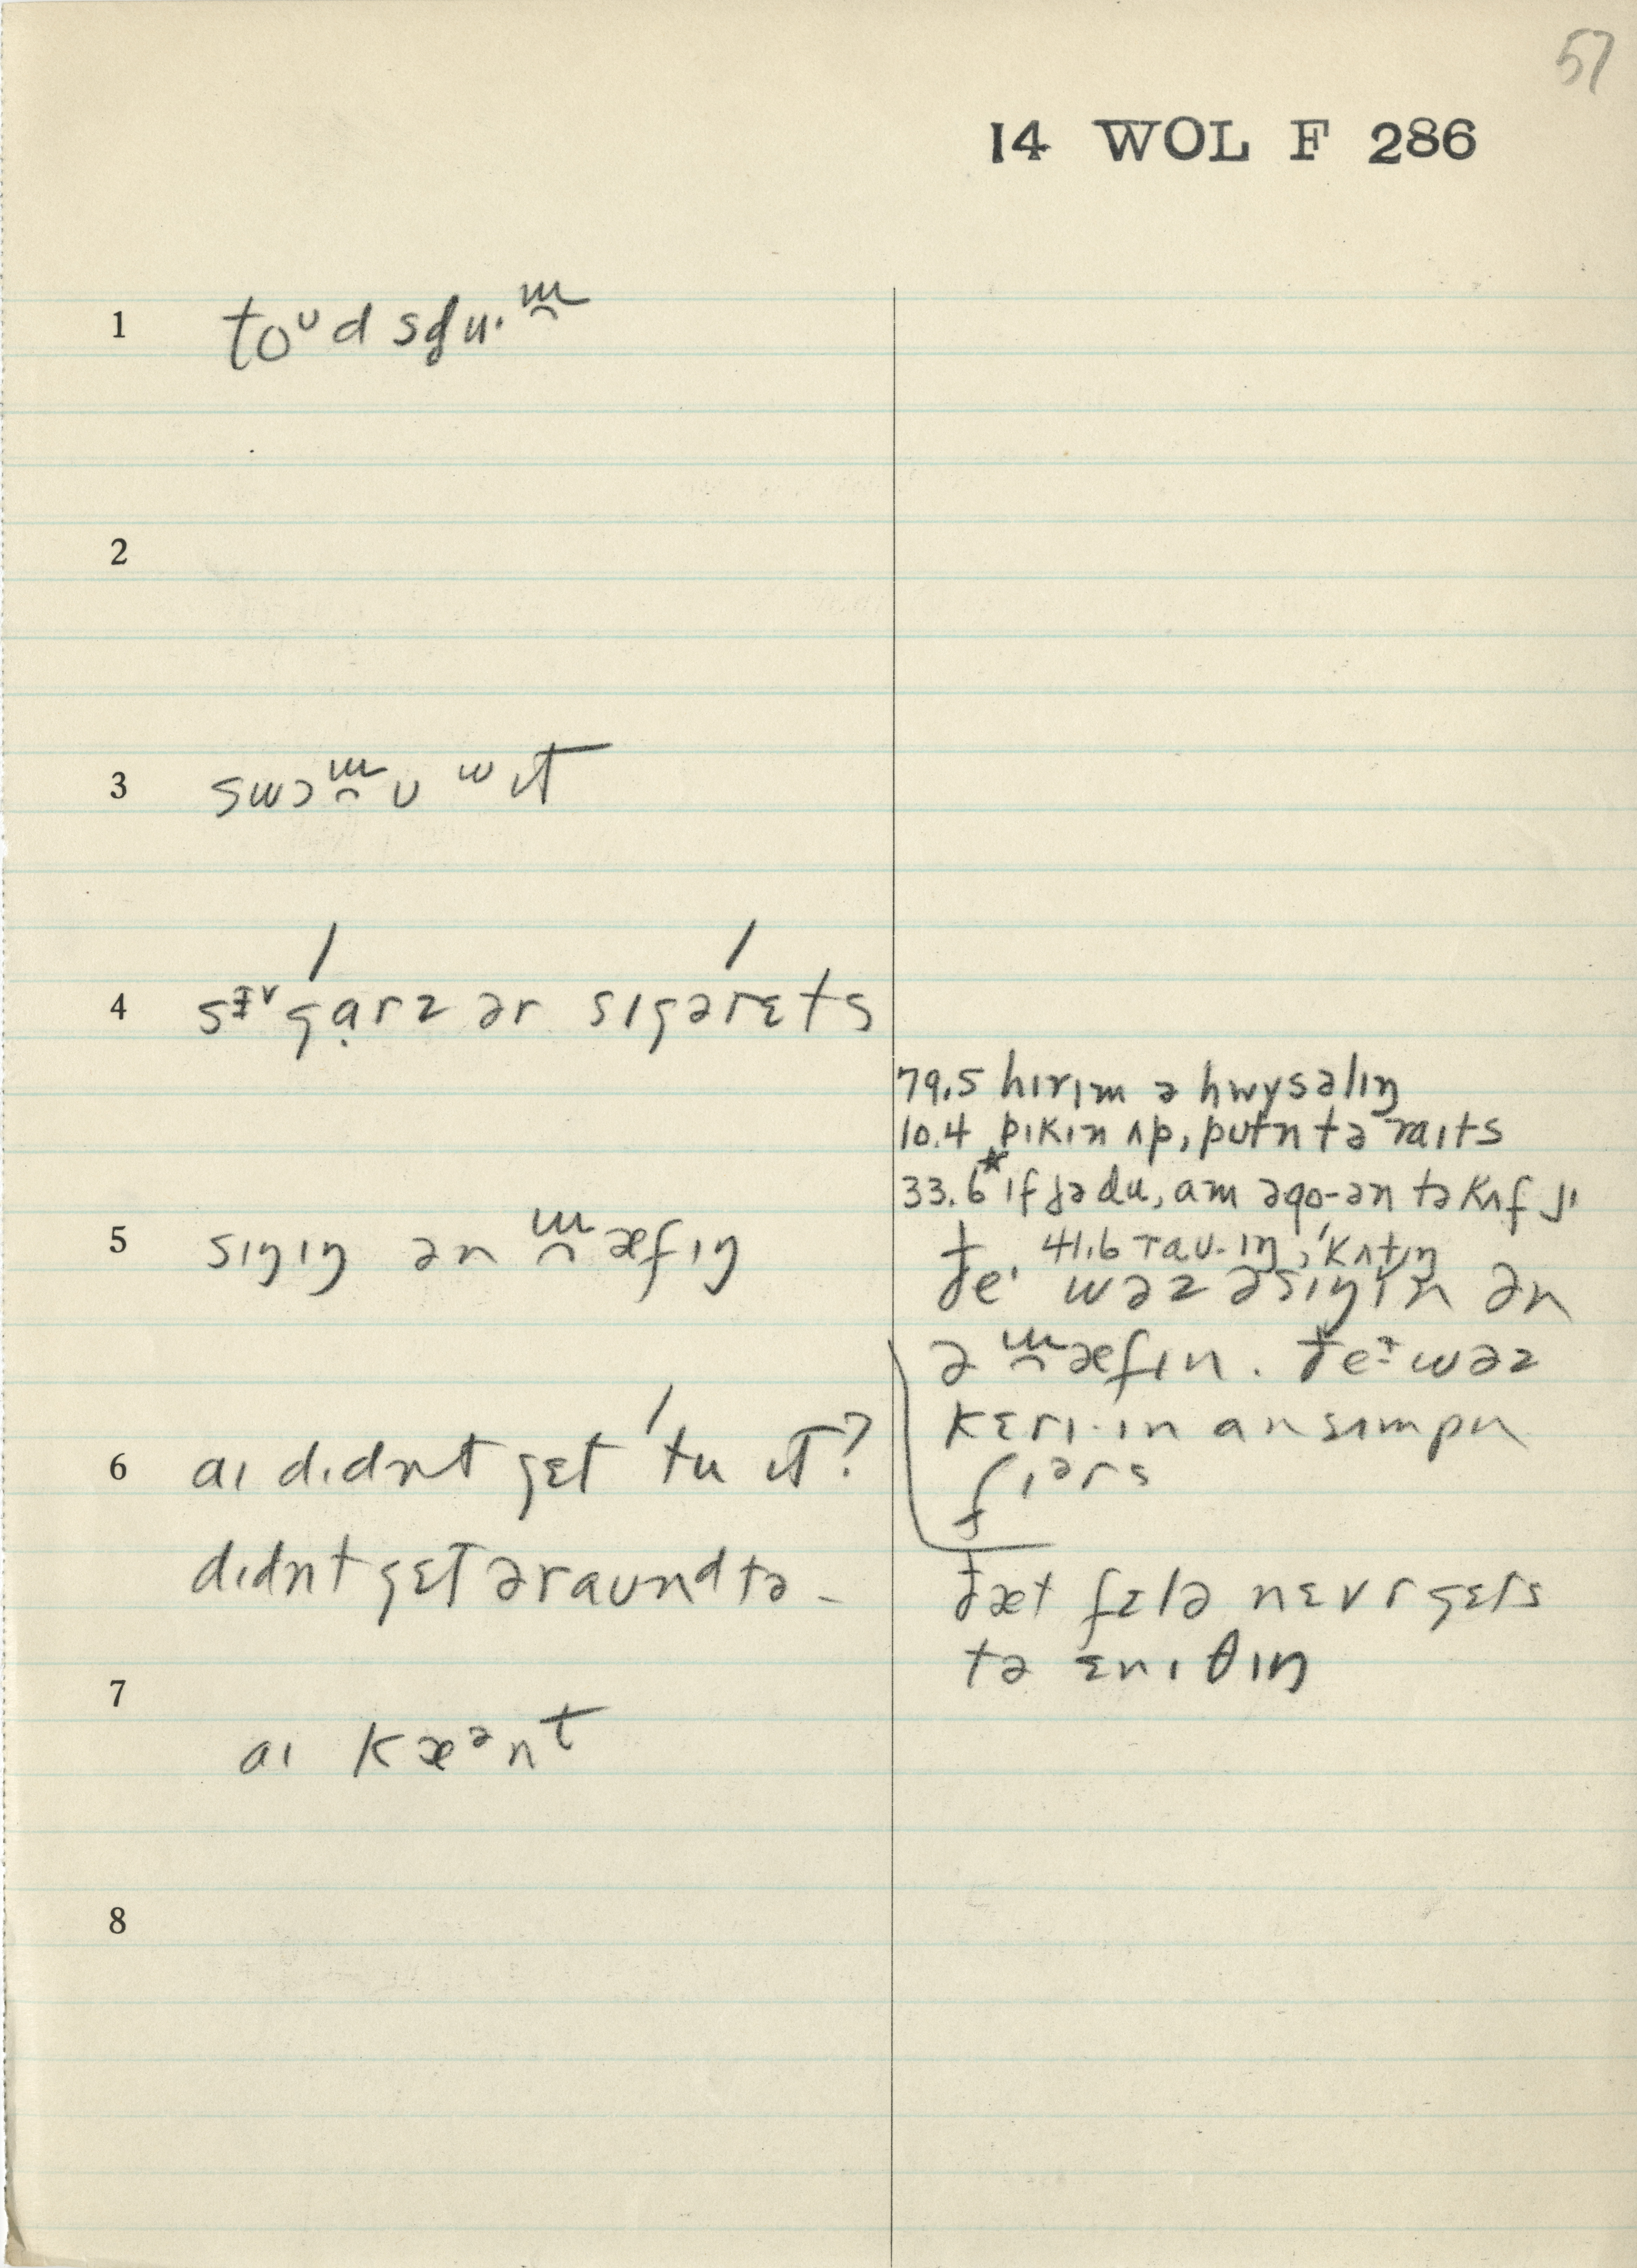 57
14 WOL F 286
1 toᶷd sdu·ɯ̯
2
3 swɔɯ̯ʊ ʷɪt
4 sɪᵛgạrz ər sɪgərɛts
79.5 hɪrɪm ə hwysəlɪŋ
10.4 pɪkɪn ʌp, putn tə raɪts
33.6* ɪf jə du, am əgo-ən tə kʌf jɪ
5 sɪŋɪŋ ən ɯ̯æfɪŋ
41.6 rau·ɪŋ, ˈkʌtɪŋ
ðeˑ wəz əsɪŋɪn ən
ə ɯ̯æfɪn. ðeᶤ wəz
kɛrɪ·ɪn an sʌmpn
fɪərs
6 aɪ dɪdnt gɛt ˈtu ɪt?
dɪdnt gɛt əraundtə –
ðæt fɛlə nɛvr gɛts
tə ɛnɪθɪŋ
7
aɪ kæᵊnt
8